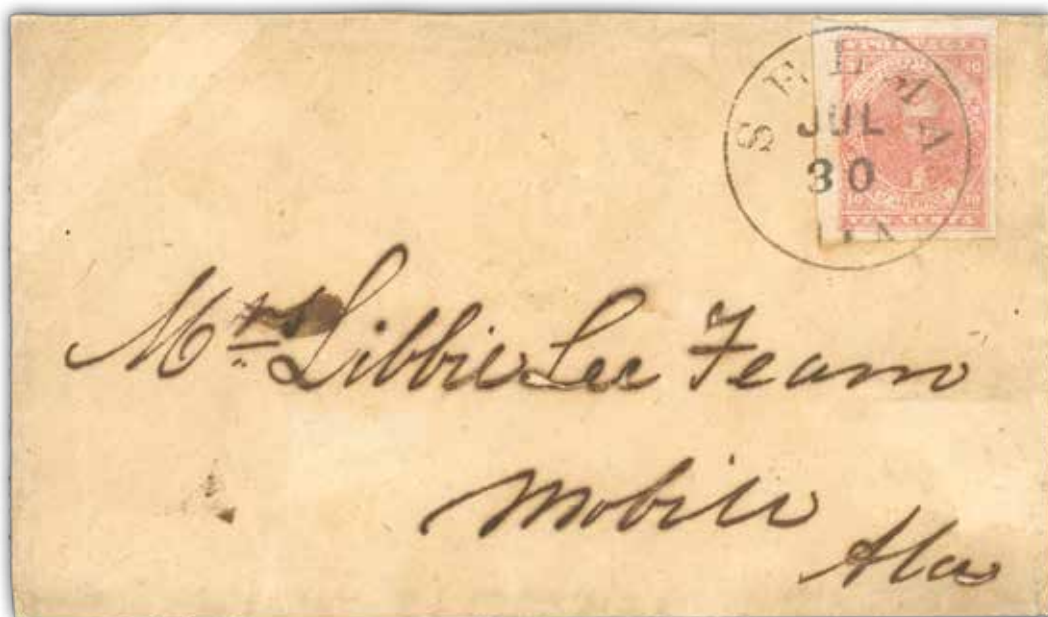 SELMA
JUL
30
Mrs Libbie Lee Fearn
Mobile
Ala